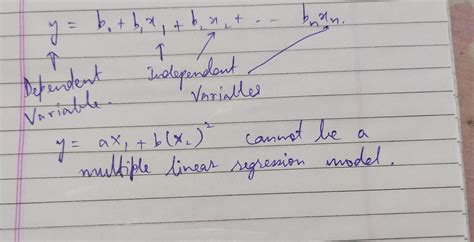 y = b₀ + b₁x₁ + b₂x₂ + - - bₙxₙ.
Dependent Variable.
Independent Variables
y = ax₁ + b(x₂)² cannot be a
multiple linear regression model.